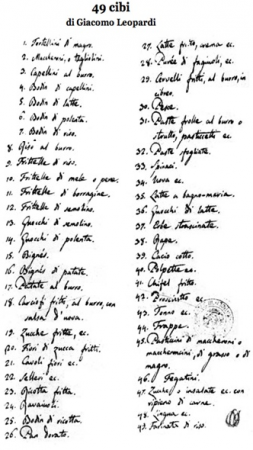 49 cibi
di Giacomo Leopardi
1. Tortellini di magro.
2. Maccheroni, o tagliolini.
3. Capellini al burro.
4. Bodin di capellini.
5. Bodin di latte.
6. Bodin di polenta.
7. Bodin di riso.
8. Riso al burro.
9. Frittelle di riso.
10. Frittelle di mele o pere.
11. Frittelle di borragine.
12. Frittelle di semolino.
13. Gnocchi di semolino.
14. Gnocchi di polenta.
15. Bignés.
16. Bignés di patate.
17. Patate al burro.
18. Carciofi fritti, al burro, con
salsa d'uova.
19. Zucche fritte, ec.
20. Fiori di zucca fritti.
21. Cavoli fiori ec.
22. Selleri ec.
23. Ricotta fritta.
24. Ravaiuoli.
25. Bodin di ricotta.
26. Pan dorato.
27. Latte fritto, crema ec.
28. Purée di fagiuoli, ec.
29. Cervelli fritti, al burro, in
cibreo.
30. Pesce.
31. Paste frolle al burro o
strutto, pasticcetti ec.
32. Paste sfogliate.
33. Spinaci.
34. Uova ec.
35. Latte a bagno-maria.
36. Gnocchi di latte.
37. Erbe strascinate.
38. Rape.
39. Cacio cotto.
40. Polpette ec.
41. Chifel fritto.
42. Prosciutto ec.
43. Tonno ec.
44. Frappe.
45. Pasticcini di maccheroni o
maccheroncini, di grasso o di
magro.
46. Fegatini.
47. Zucche o insalate ec. con
ripieno di carne.
48. Lingua ec.
49. Farinata di riso.